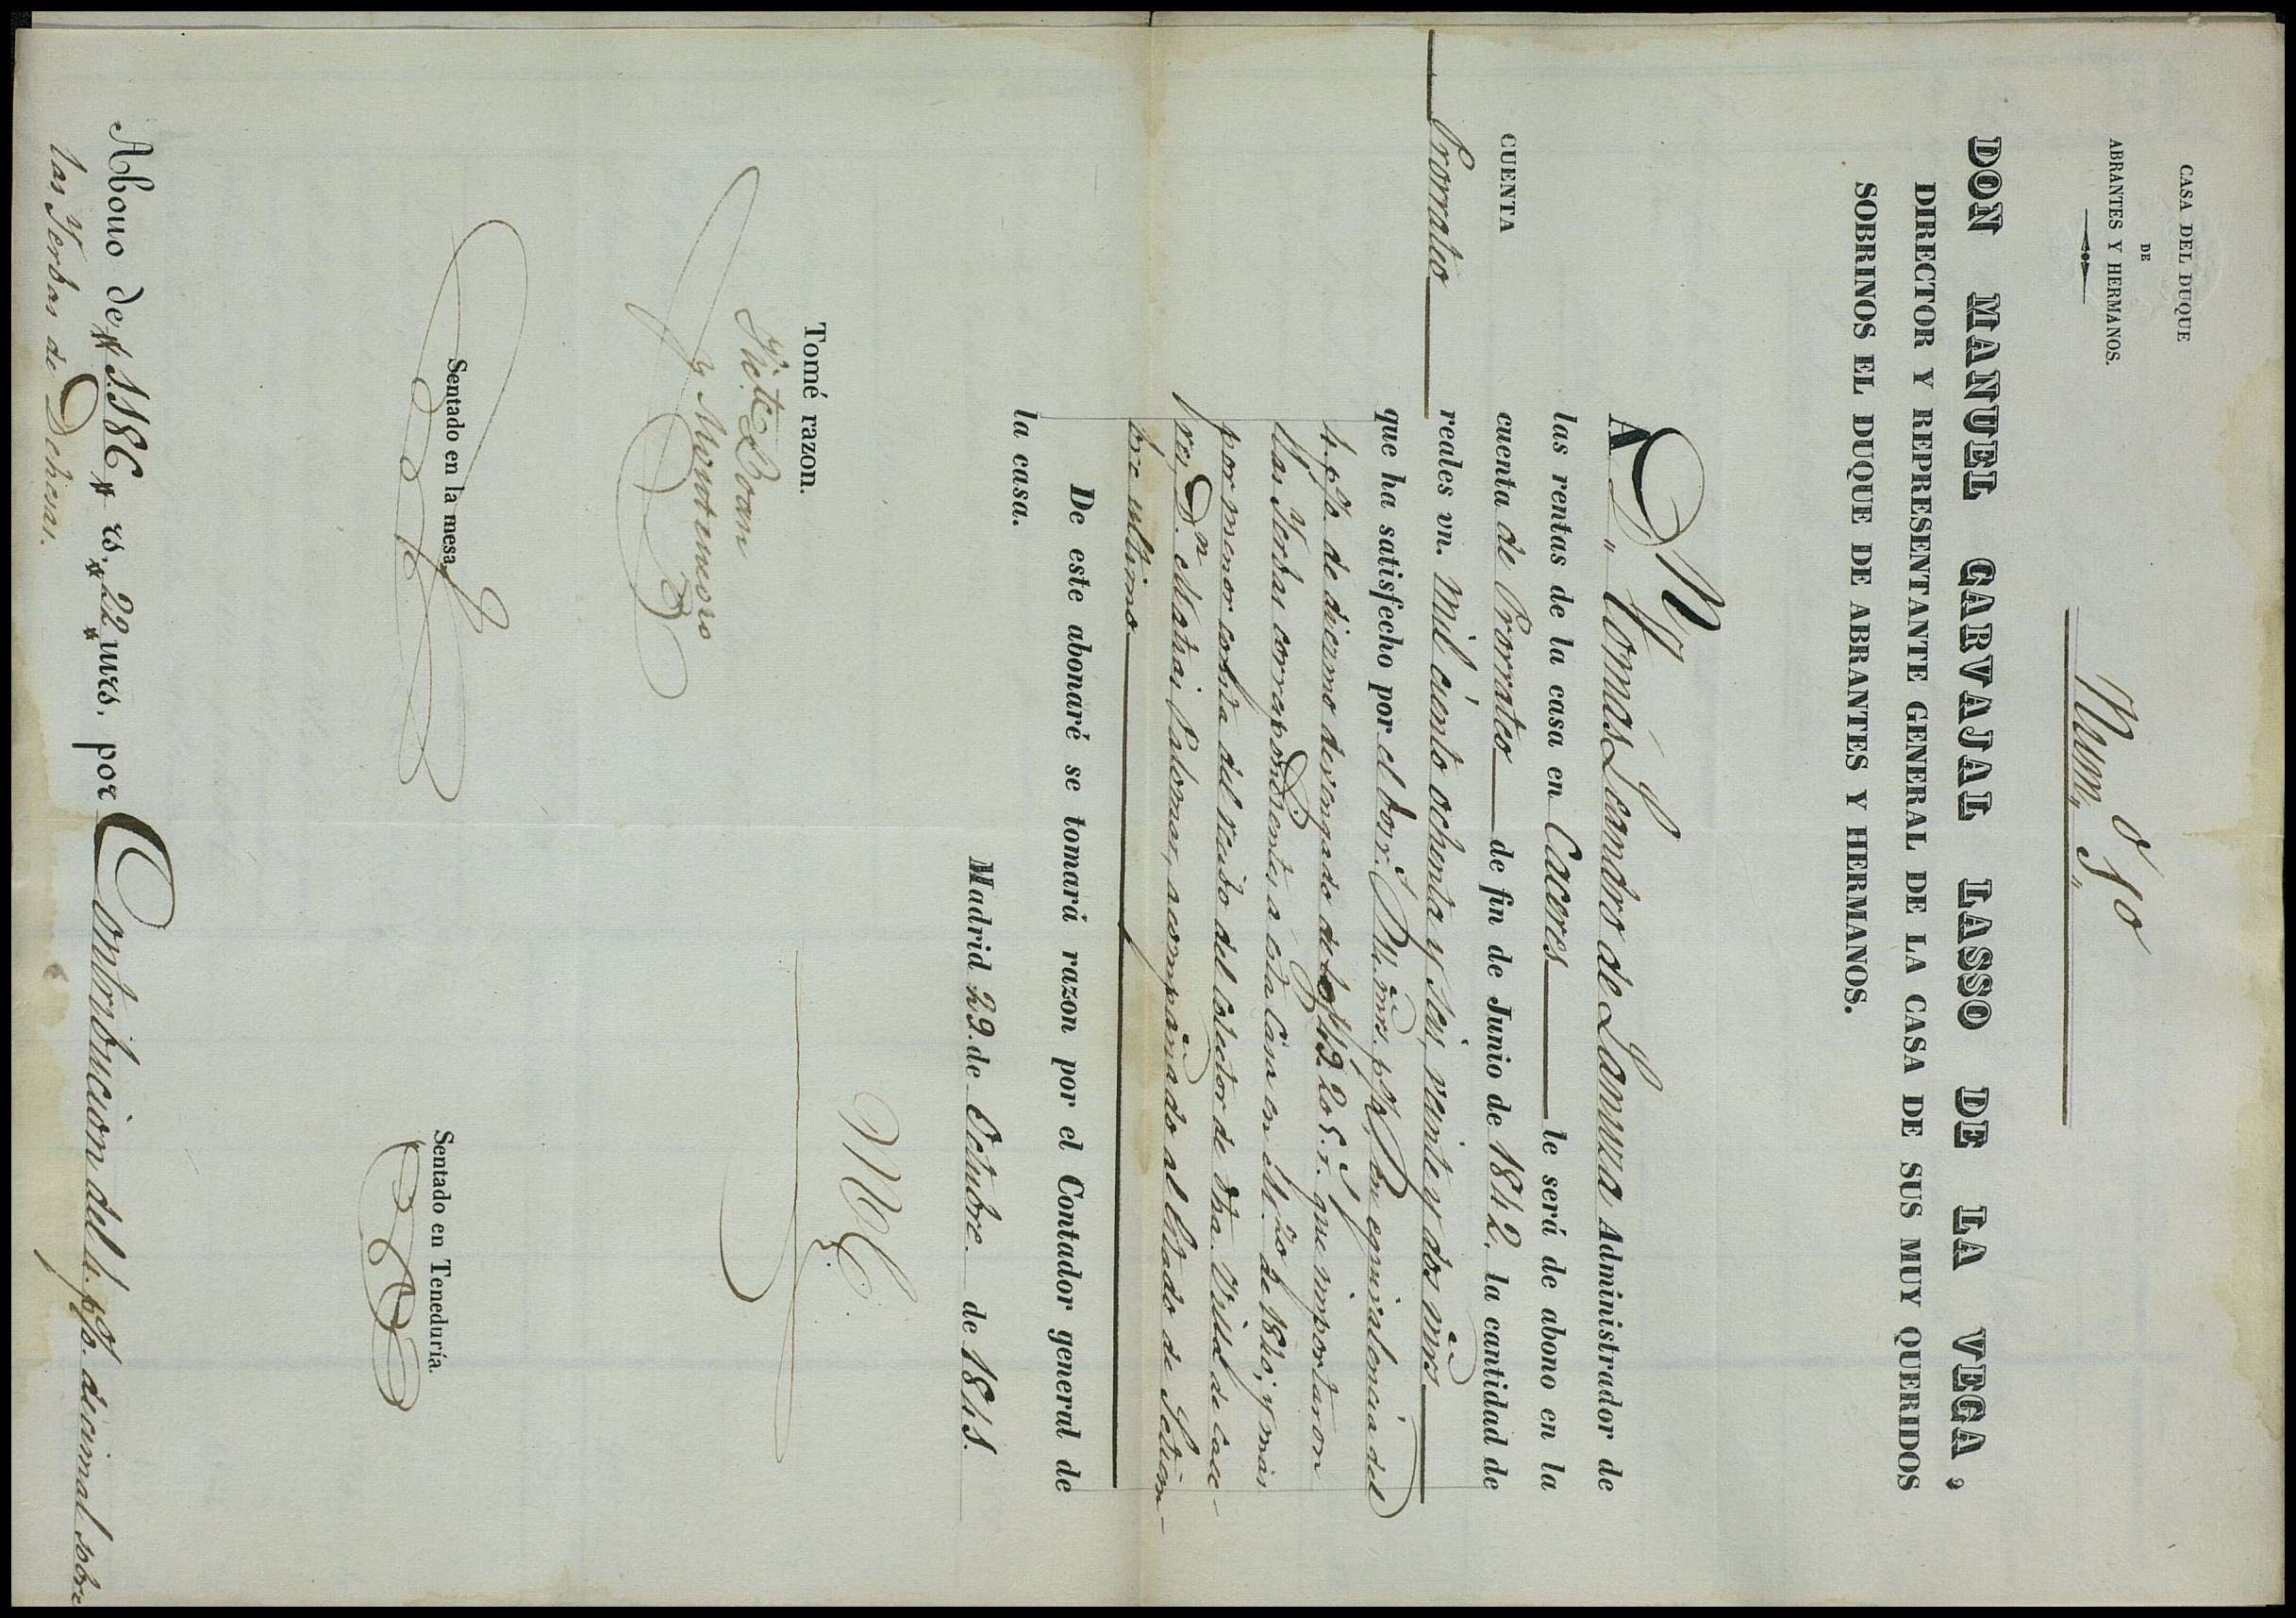 CASA DEL DUQUE
DE
ABRANTES Y HERMANOS.
Num.º 50
DON MANUEL CARVAJAL LASSO DE LA VEGA,
DIRECTOR Y REPRESENTANTE GENERAL DE LA CASA DE SUS MUY QUERIDOS
SOBRINOS EL DUQUE DE ABRANTES Y HERMANOS.
A Dn. Tomás Leandro de Administrador de
las rentas de la casa en Caceres le será de abono en la
CUENTA
cuenta de Prorrateo de fin de Junio de 1842. la cantidad de
Prorrateo
reales vn. mil ciento ochenta y seis, veinte y dos mrs.
que ha satisfecho por el equivalencia del
4. p%. de diezmo devengado de que importaron
las Yerbas correspondientes a esta Casa en de 1840; y mas
por menor consta del recibo del colector de dha. Villa de Cace-
res, Dn. Matias Palomar, acompañado al Estado de Setiem-
bre ultimo
De este abonaré se tomará razon por el Contador general de
la casa.
Madrid 29. de Octubre. de 1845.
M C
Tomé razon.
Vic.te Boan
y Montenegro
Sentado en la mesa
Sentado en Teneduría.
Abono de 1.186 rs. 22 mrs. por Contribucion del 4. p%. decimal sobre
las Yerbas de Dehesas.